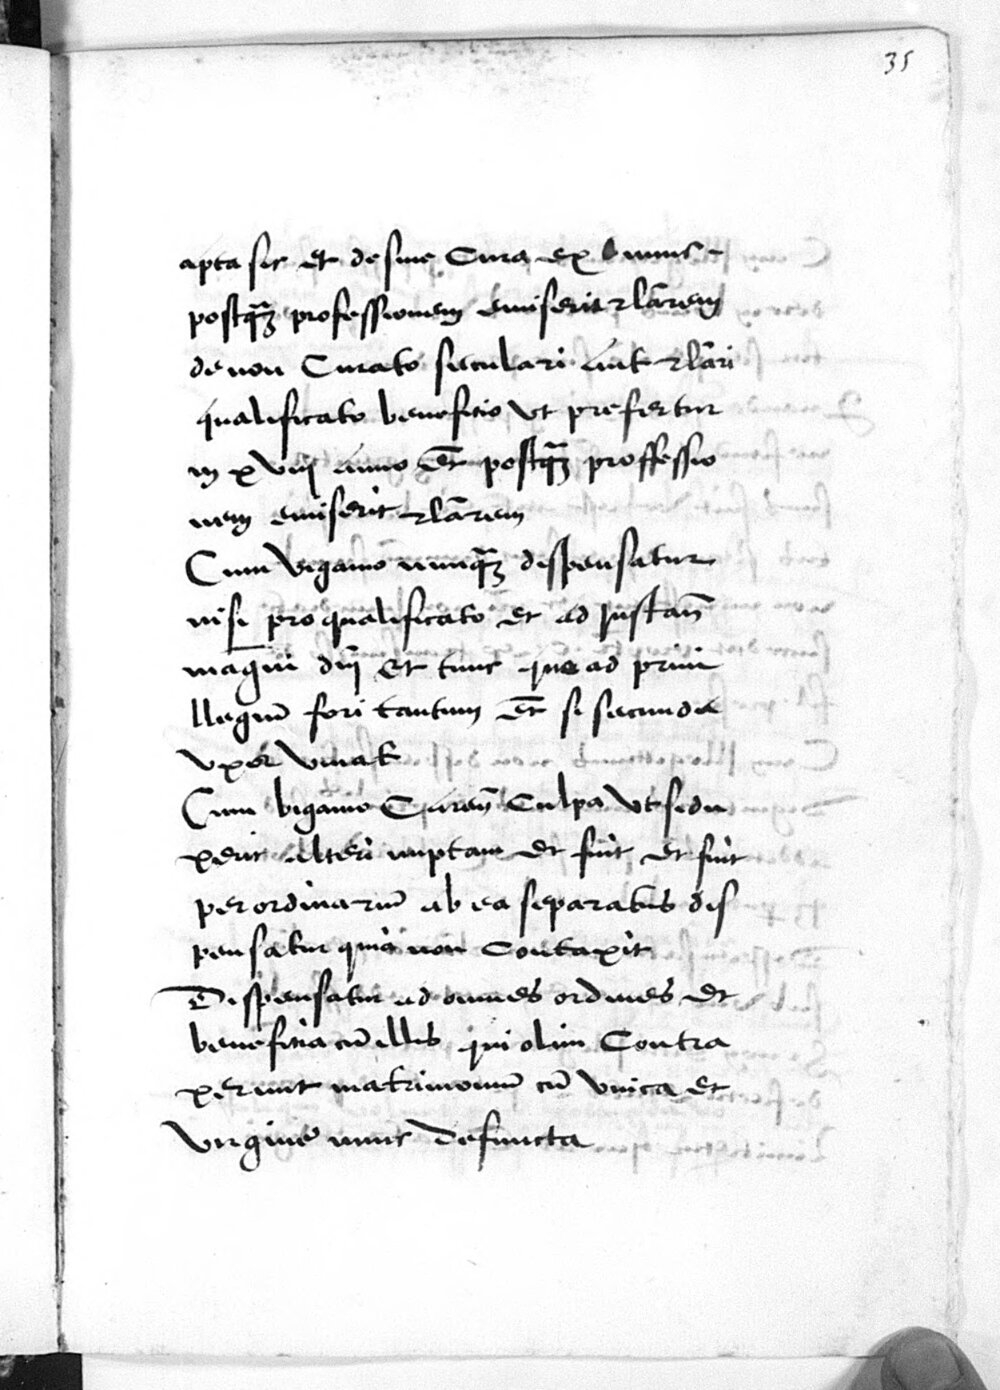 35
apta sic et de sine Cura ex nunc
postqȝ professionem emiserit rlarem
de non Curato seculari aut rlari
qualificato beneficio Vt prefertur
in xviij anno Et postqȝ proffessio
nem emiserit rlarem
Cum Vigamo nunqȝ dispensatur
nisi pro qualificato et ad Instan
magni dnj et tunc quo ad priui
llegiu fori tantum Et si secunda
Vxor Viuat
Cum bigamo Caren Culpa Vt si du
xerit alteri nuptam et sciuit et fuit
per ordinariu ab ea separatus dis
pensatur quia non Contraxit
Dispensatur ad omnes ordines et
beneficia cu illis qui olim Contra
xerunt matrimoniu cu Vnica et
Virgine nunc defuncta